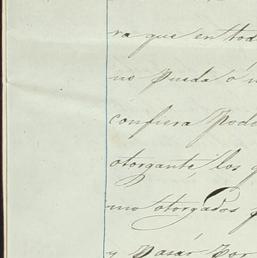 ra que en tod
no pueda ó n
confiera Pode
otorgante, los q
mo otorgados y
y pasar por